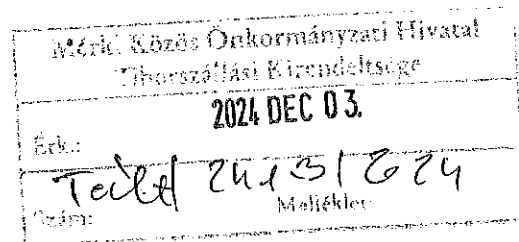 Mérki Közös Önkormányzati Hivatal
Tiborszállási Kirendeltsége
2024 DEC 03.
Érk.:
Szám:
Melléklet: